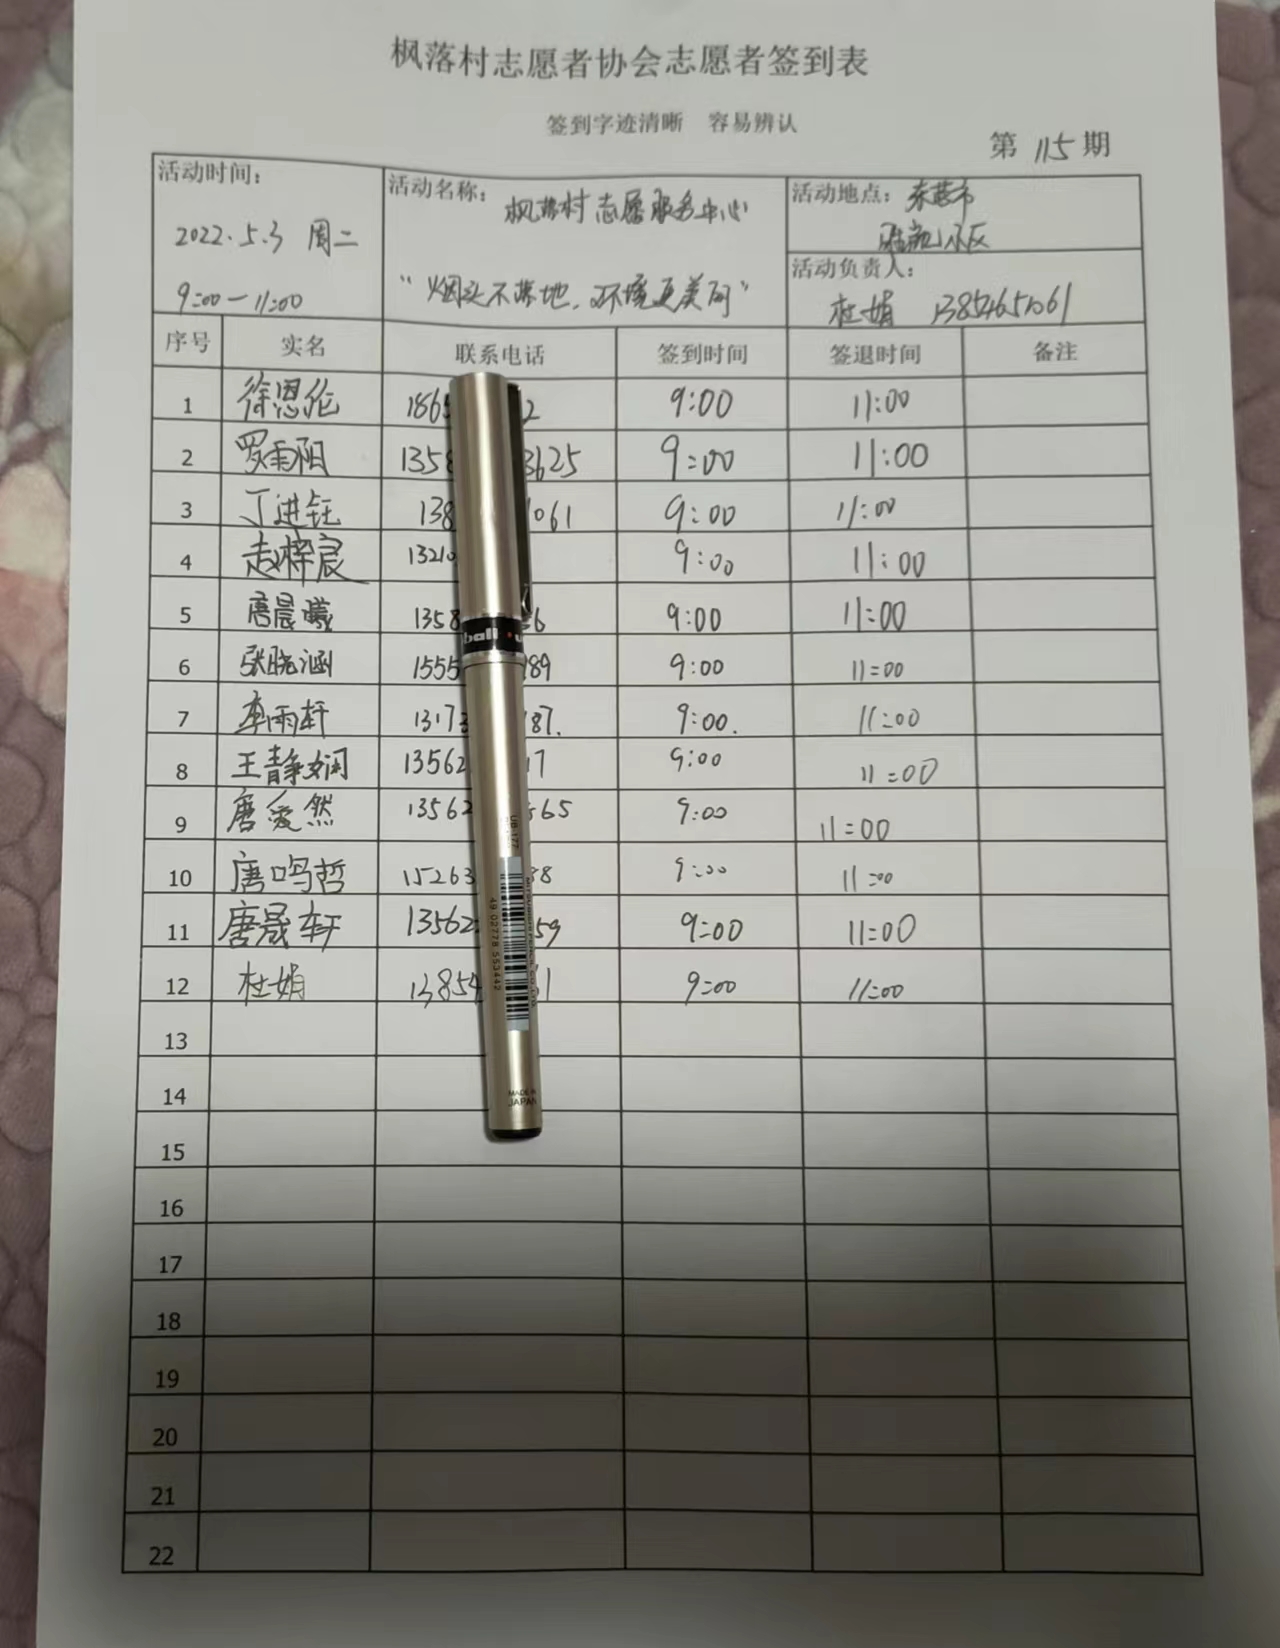 枫落村志愿者协会志愿者签到表
签到字迹清晰 容易辨认
第 115 期
活动时间：
2022.5.3 周二
9:00—11:00
活动名称：枫落村志愿服务中心
“烟头不落地，环境更美丽”
活动地点：东营市
小区
活动负责人：
杜娟 13854651061
序号 实名 联系电话 签到时间 签退时间 备注
1 徐恩伦 1865 2 9:00 11:00
2 罗雨阳 1358 3625 9:00 11:00
3 丁进钰 138 1061 9:00 11:00
4 赵梓宸 13210 9:00 11:00
5 唐晨曦 1358 36 9:00 11:00
6 张晓涵 1555 189 9:00 11:00
7 李雨轩 13173 187. 9:00. 11:00
8 王静娴 13562 17 9:00 11:00
9 唐爱然 13562 565 9:00 11:00
10 唐鸣哲 15263 88 9:00 11:00
11 唐晟轩 13562 59 9:00 11:00
12 杜娟 13854 61 9:00 11:00
13
14
15
16
17
18
19
20
21
22
ball
UB-177
MITSUBISHI PENCIL CO.,LTD.
49 02778 553442
MADE IN
JAPAN